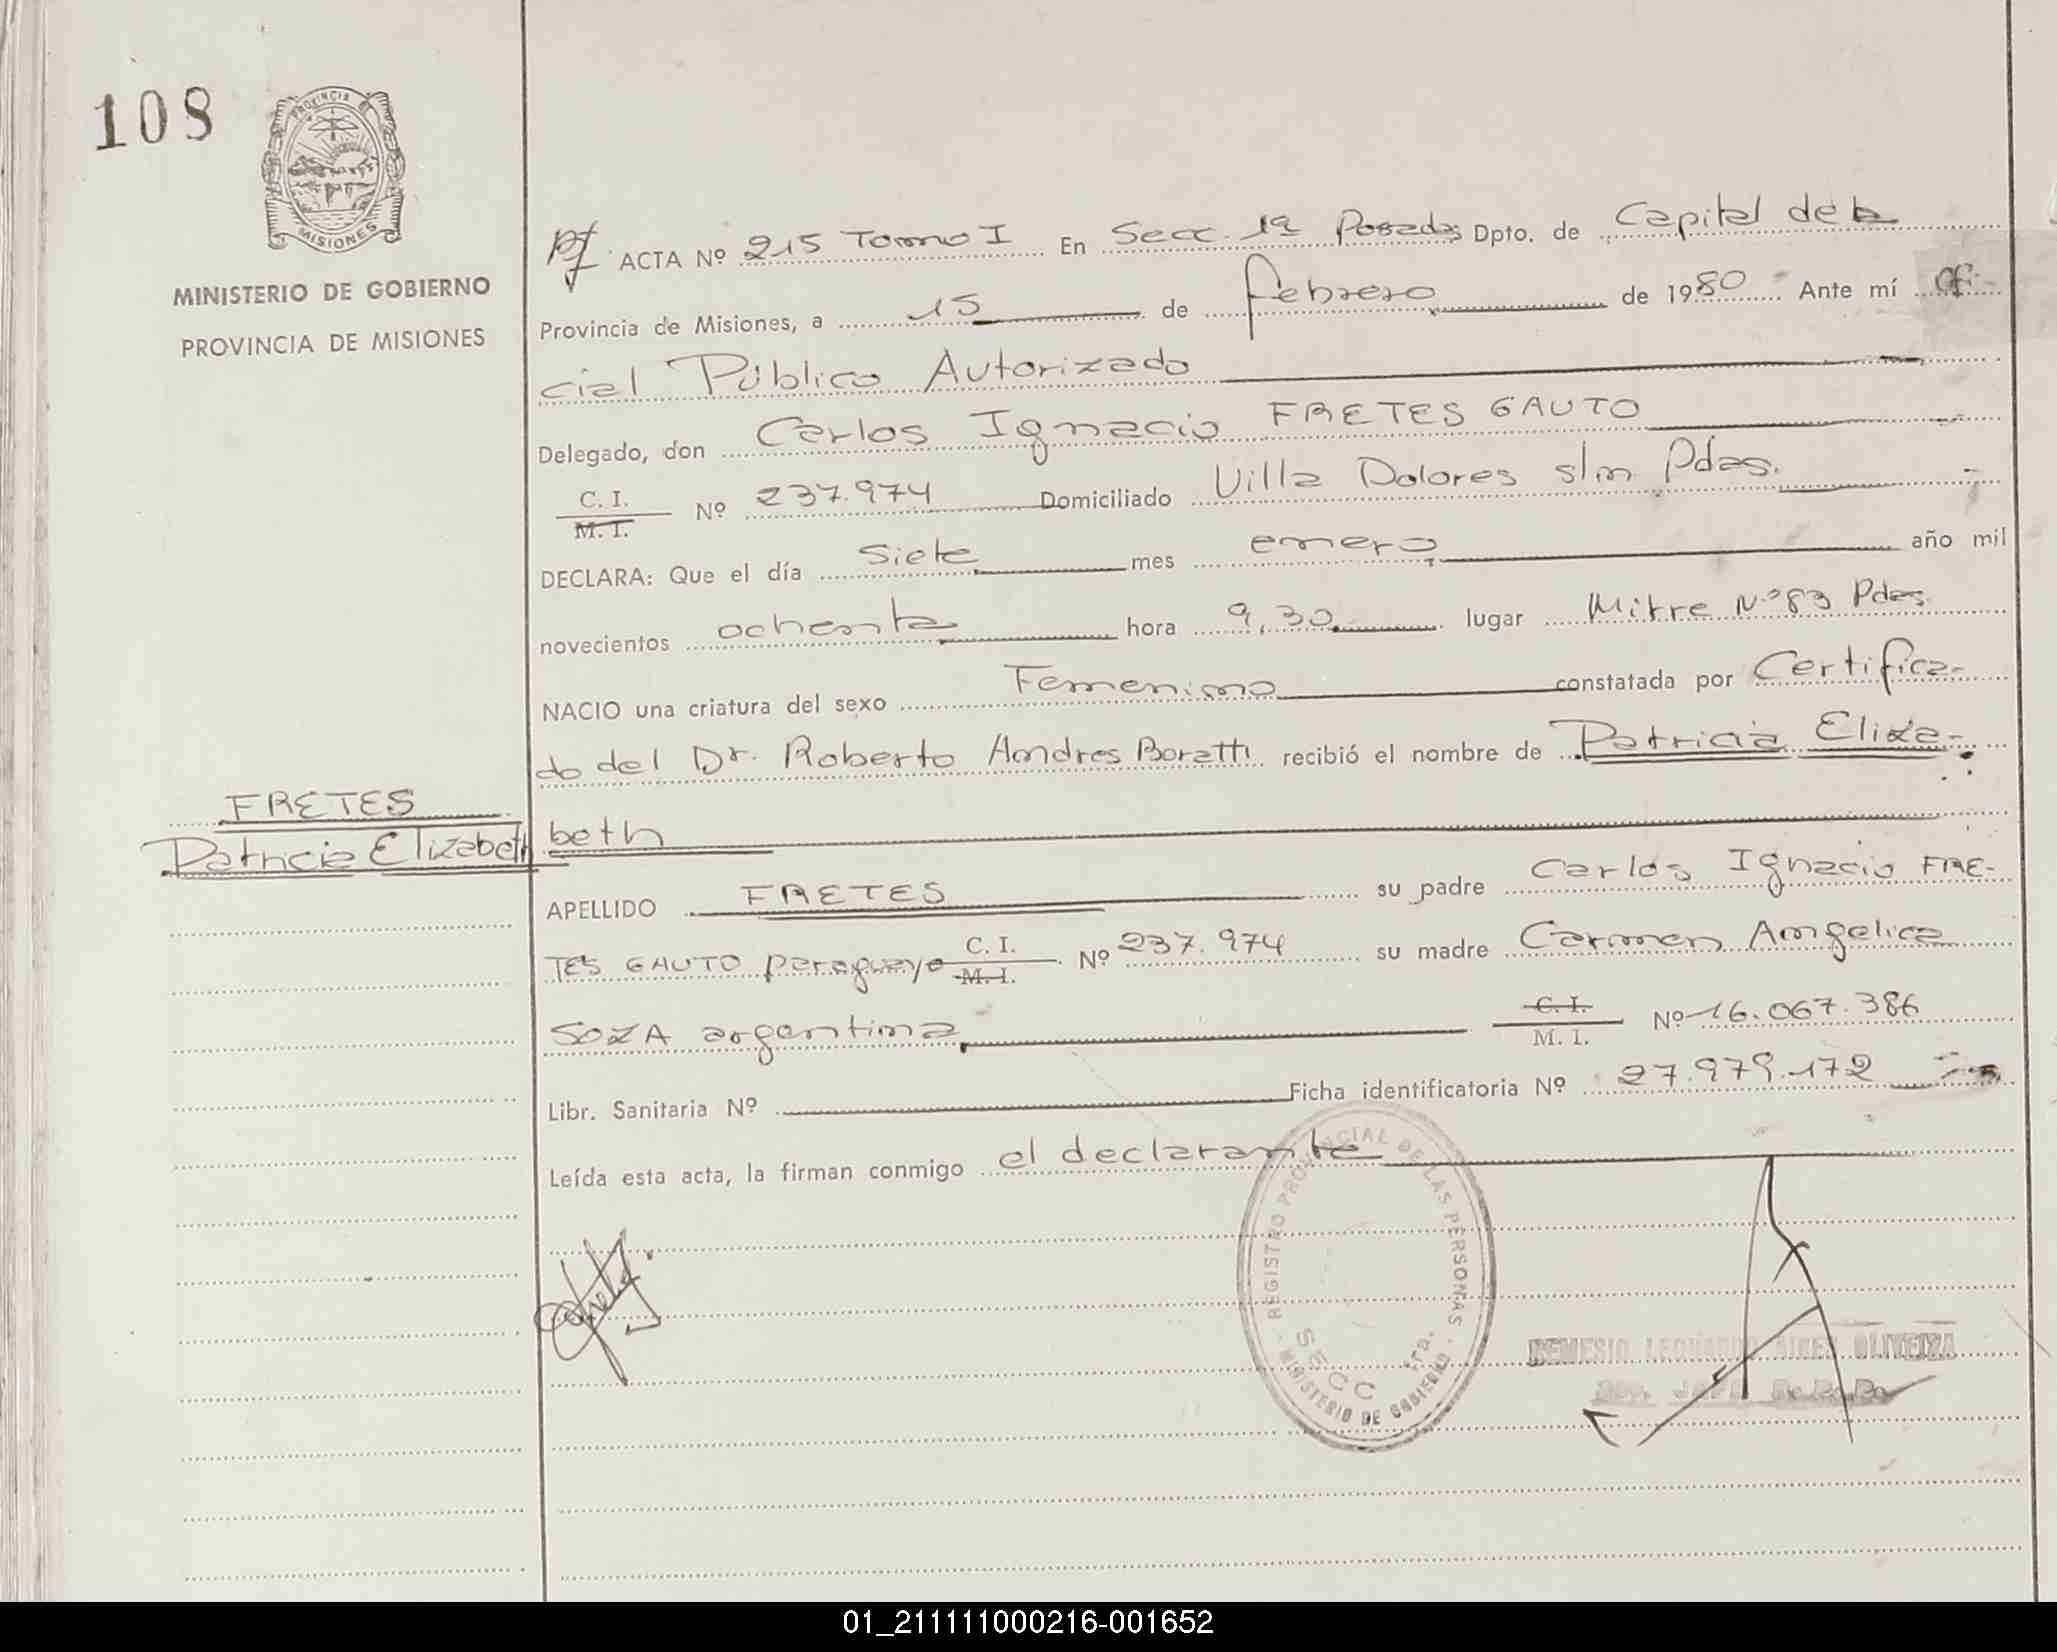 108
PROVINCIA DE
MISIONES
MINISTERIO DE GOBIERNO
PROVINCIA DE MISIONES
ACTA Nº 215 Tomo I En Secc. 1ª Posadas Dpto. de Capital de la
Provincia de Misiones, a 15 de febrero de 1980 Ante mí Ofi-
cial Público Autorizado
Delegado, don Carlos Ignacio FRETES GAUTO
C. I.
M. I. Nº 237.974 Domiciliado Villa Dolores s/n Pdas.
DECLARA: Que el día siete mes enero año mil
novecientos ochenta hora 9,30 lugar Mitre Nº 83 Pdas.
NACIO una criatura del sexo Femenino constatada por Certifica-
do del Dr. Roberto Andres Boratti recibió el nombre de Patricia Eliza-
beth
FRETES
Patricia Elizabeth
APELLIDO FRETES su padre Carlos Ignacio FRE-
TES GAUTO paraguayo C. I. M. I. Nº 237.974 su madre Carmen Angelica
SOZA argentina C. I. M. I. Nº 16.067.386
Libr. Sanitaria Nº Ficha identificatoria Nº 27.979.172
Leída esta acta, la firman conmigo el declarante
REGISTRO PROVINCIAL DE LAS PERSONAS
SECC 1ra.
MINISTERIO DE GOBIERNO
OLIVEIRA
01_211111000216-001652